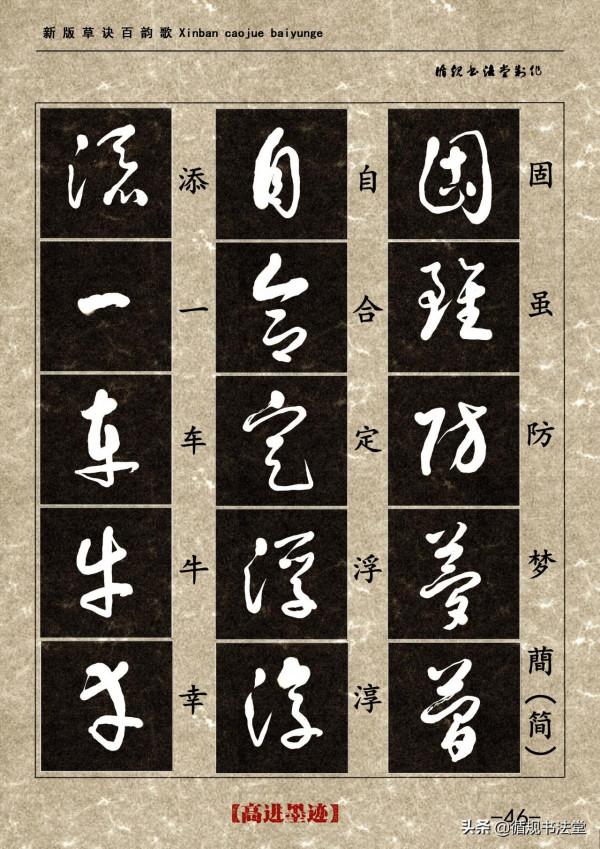 新版草诀百韵歌 Xinban caojue baiyunge
循规书法堂制作
固虽防梦蕳(简)
自合定浮淳
添一车牛幸
【高进墨迹】
-46-
头条@循规书法堂